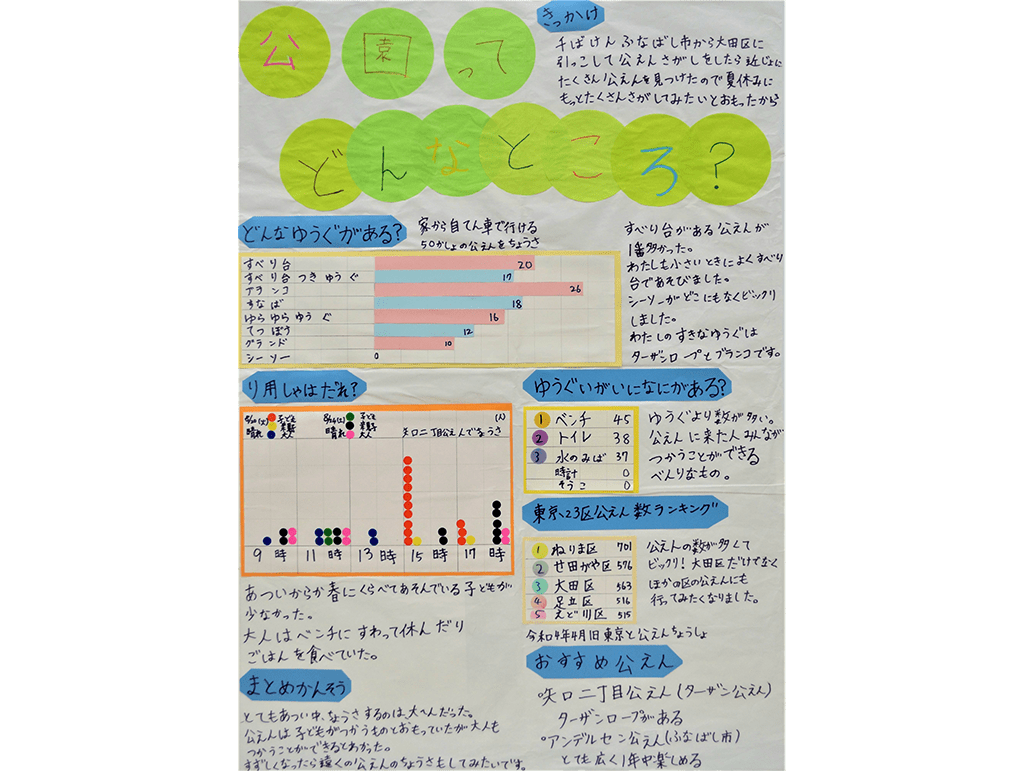 公園って
どんなところ?
きっかけ
千ばけんふなばし市から大田区に
引っこして公えんさがしをしたら近じょに
たくさん公えんを見つけたので夏休みに
もっとたくさんさがしてみたいとおもったから
どんなゆうぐがある?
家から自てん車で行ける
50かしょの公えんをちょうさ
すべり台 20
すべり台つきゆうぐ 17
ブランコ 26
すなば 18
ゆらゆらゆうぐ 16
てつぼう 12
グランド 10
シーソー 0
すべり台がある公えんが
1番多かった。
わたしも小さいときによくすべり
台であそびました。
シーソーがどこにもなくビックリ
しました。
わたしのすきなゆうぐは
ターザンロープとブランコです。
り用しゃはだれ?
晴れ 子ども 大人
晴れ 子ども 大人
(人)
矢口二丁目公えんでちょうさ
9時 11時 13時 15時 17時
あついからか春にくらべてあそんでいる子どもが
少なかった。
大人はベンチにすわって休んだり
ごはんを食べていた。
ゆうぐいがいになにがある?
1 ベンチ 45
2 トイレ 38
3 水のみば 37
時計 0
そうこ 0
ゆうぐより数が多い。
公えんに来た人みんなが
つかうことができる
べんりなもの。
東京23区公えん数ランキング
1 ねりま区 701
2 せ田がや区 576
3 大田区 563
4 足立区 516
5 えど川区 515
公えんの数が多くて
ビックリ!大田区だけでなく
ほかの区の公えんにも
行ってみたくなりました。
令和4年4月1日東京と公えんちょうしょ
まとめかんそう
とてもあつい中、ちょうさするのは大へんだった。
公えんは子どもがつかうものとおもっていたが大人も
つかうことができるとわかった。
すずしくなったら遠くの公えんのちょうさもしてみたいです。
おすすめ公えん
・矢口二丁目公えん(ターザン公えん)
ターザンロープがある
・アンデルセン公えん(ふなばし市)
とても広く1年中楽しめる